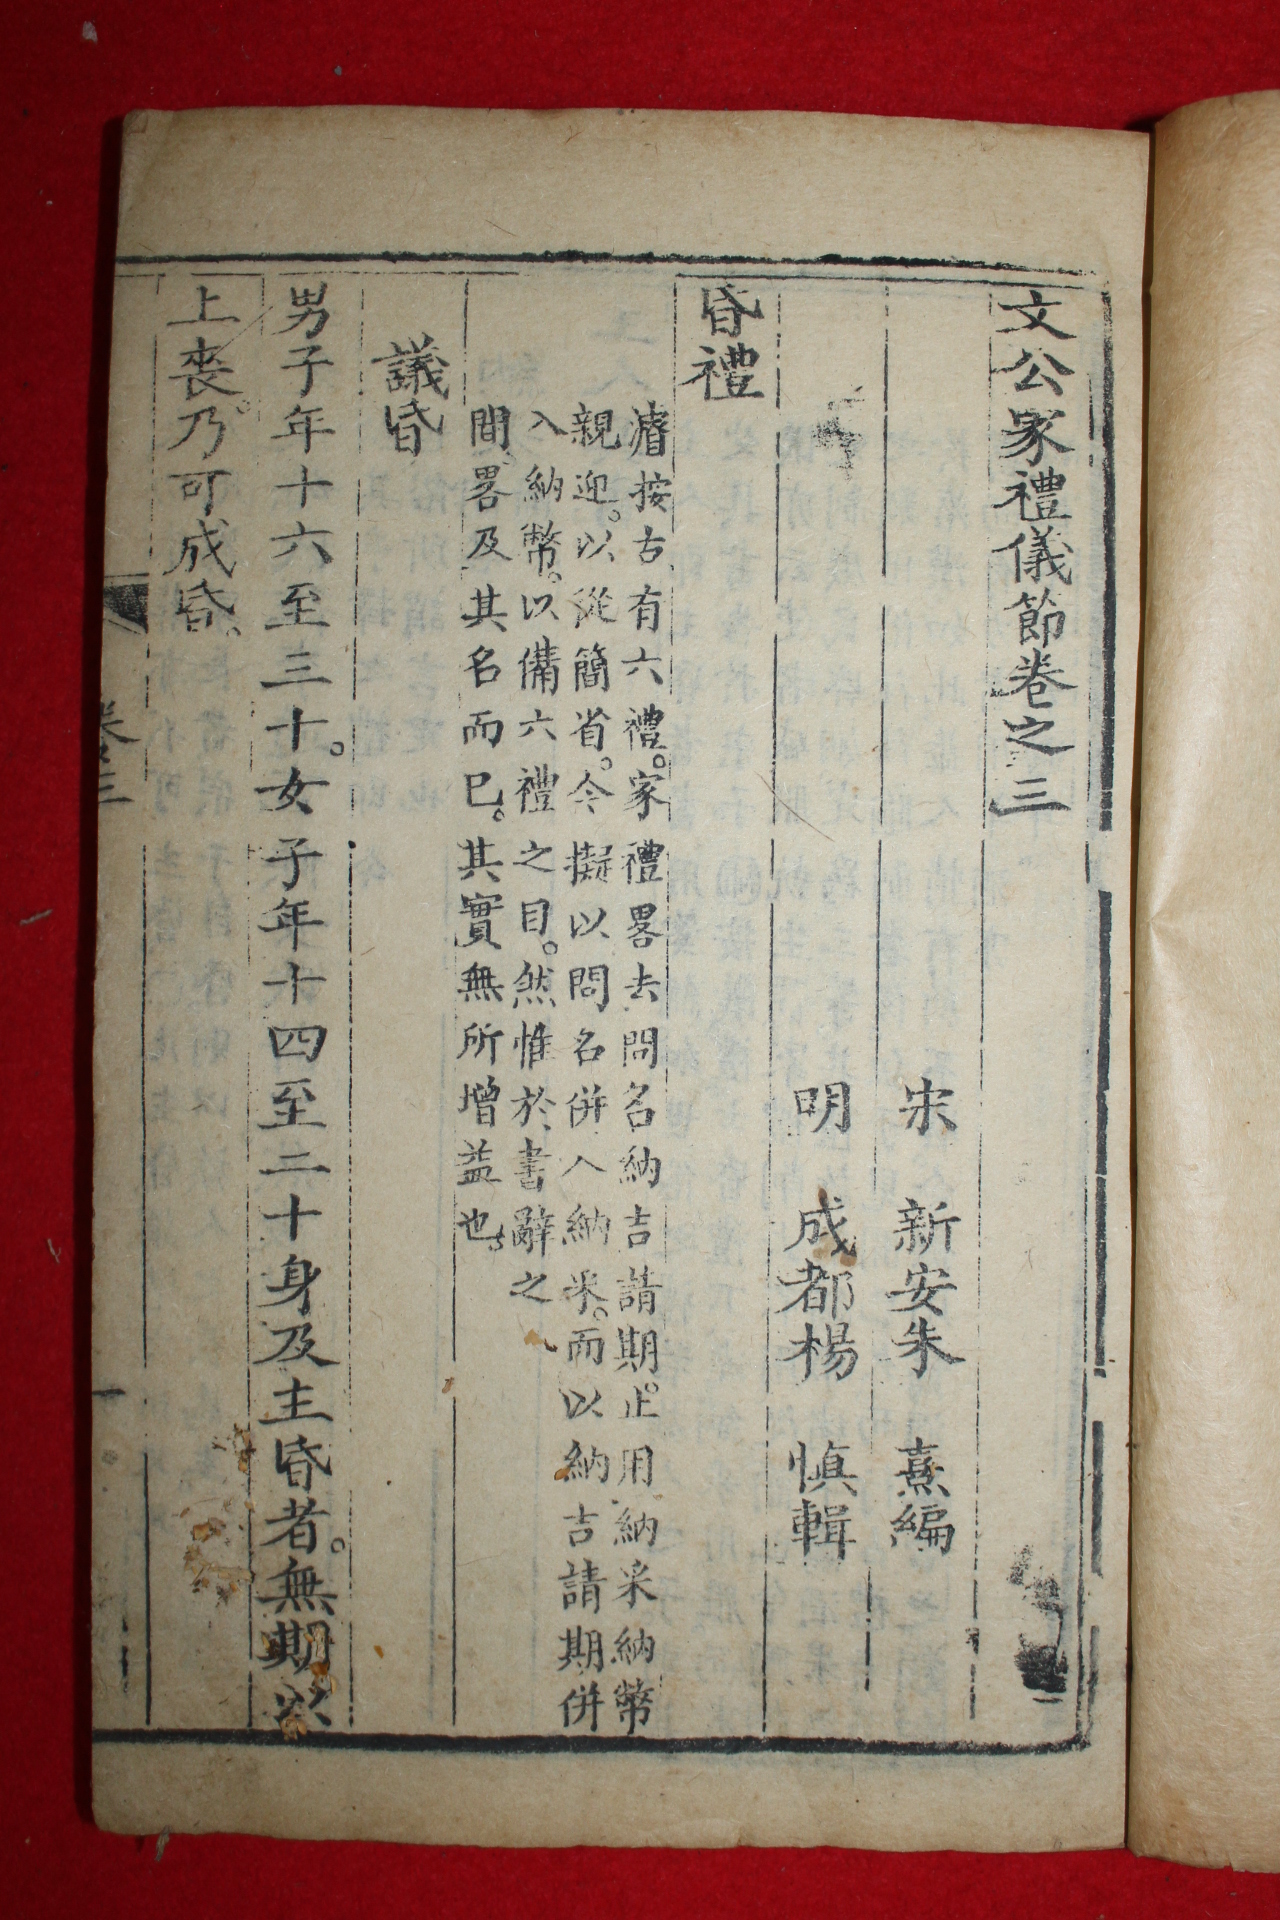 文公家禮儀節卷之三
宋 新安朱 熹編
明 成都楊 慎輯
昏禮
濬按古有六禮。家禮畧去問名納吉請期。止用納采納幣
親迎。以從簡省。今擬以問名併入納采。而以納吉請期併
入納幣。以備六禮之目。然惟於書辭之
間畧及其名而已。其實無所增益也。
議昏
男子年十六至三十。女子年十四至二十身及主昏者。無期以
上喪。乃可成昏。
卷三
一